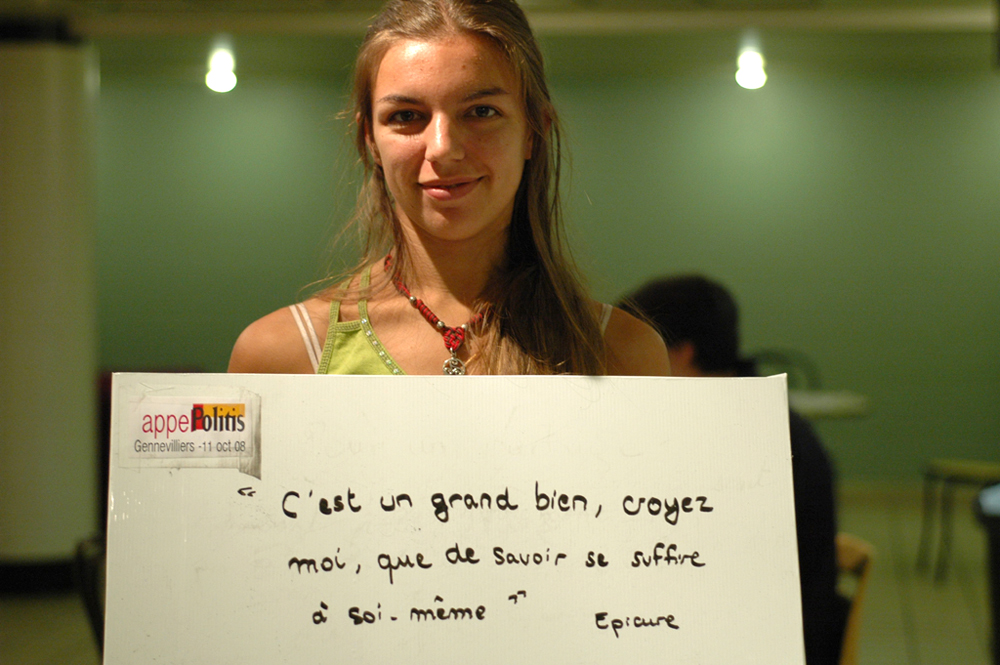 appel Politis
Gennevilliers - 11 oct 08
“ C'est un grand bien, croyez
moi, que de savoir se suffire
à soi-même ”
Epicure